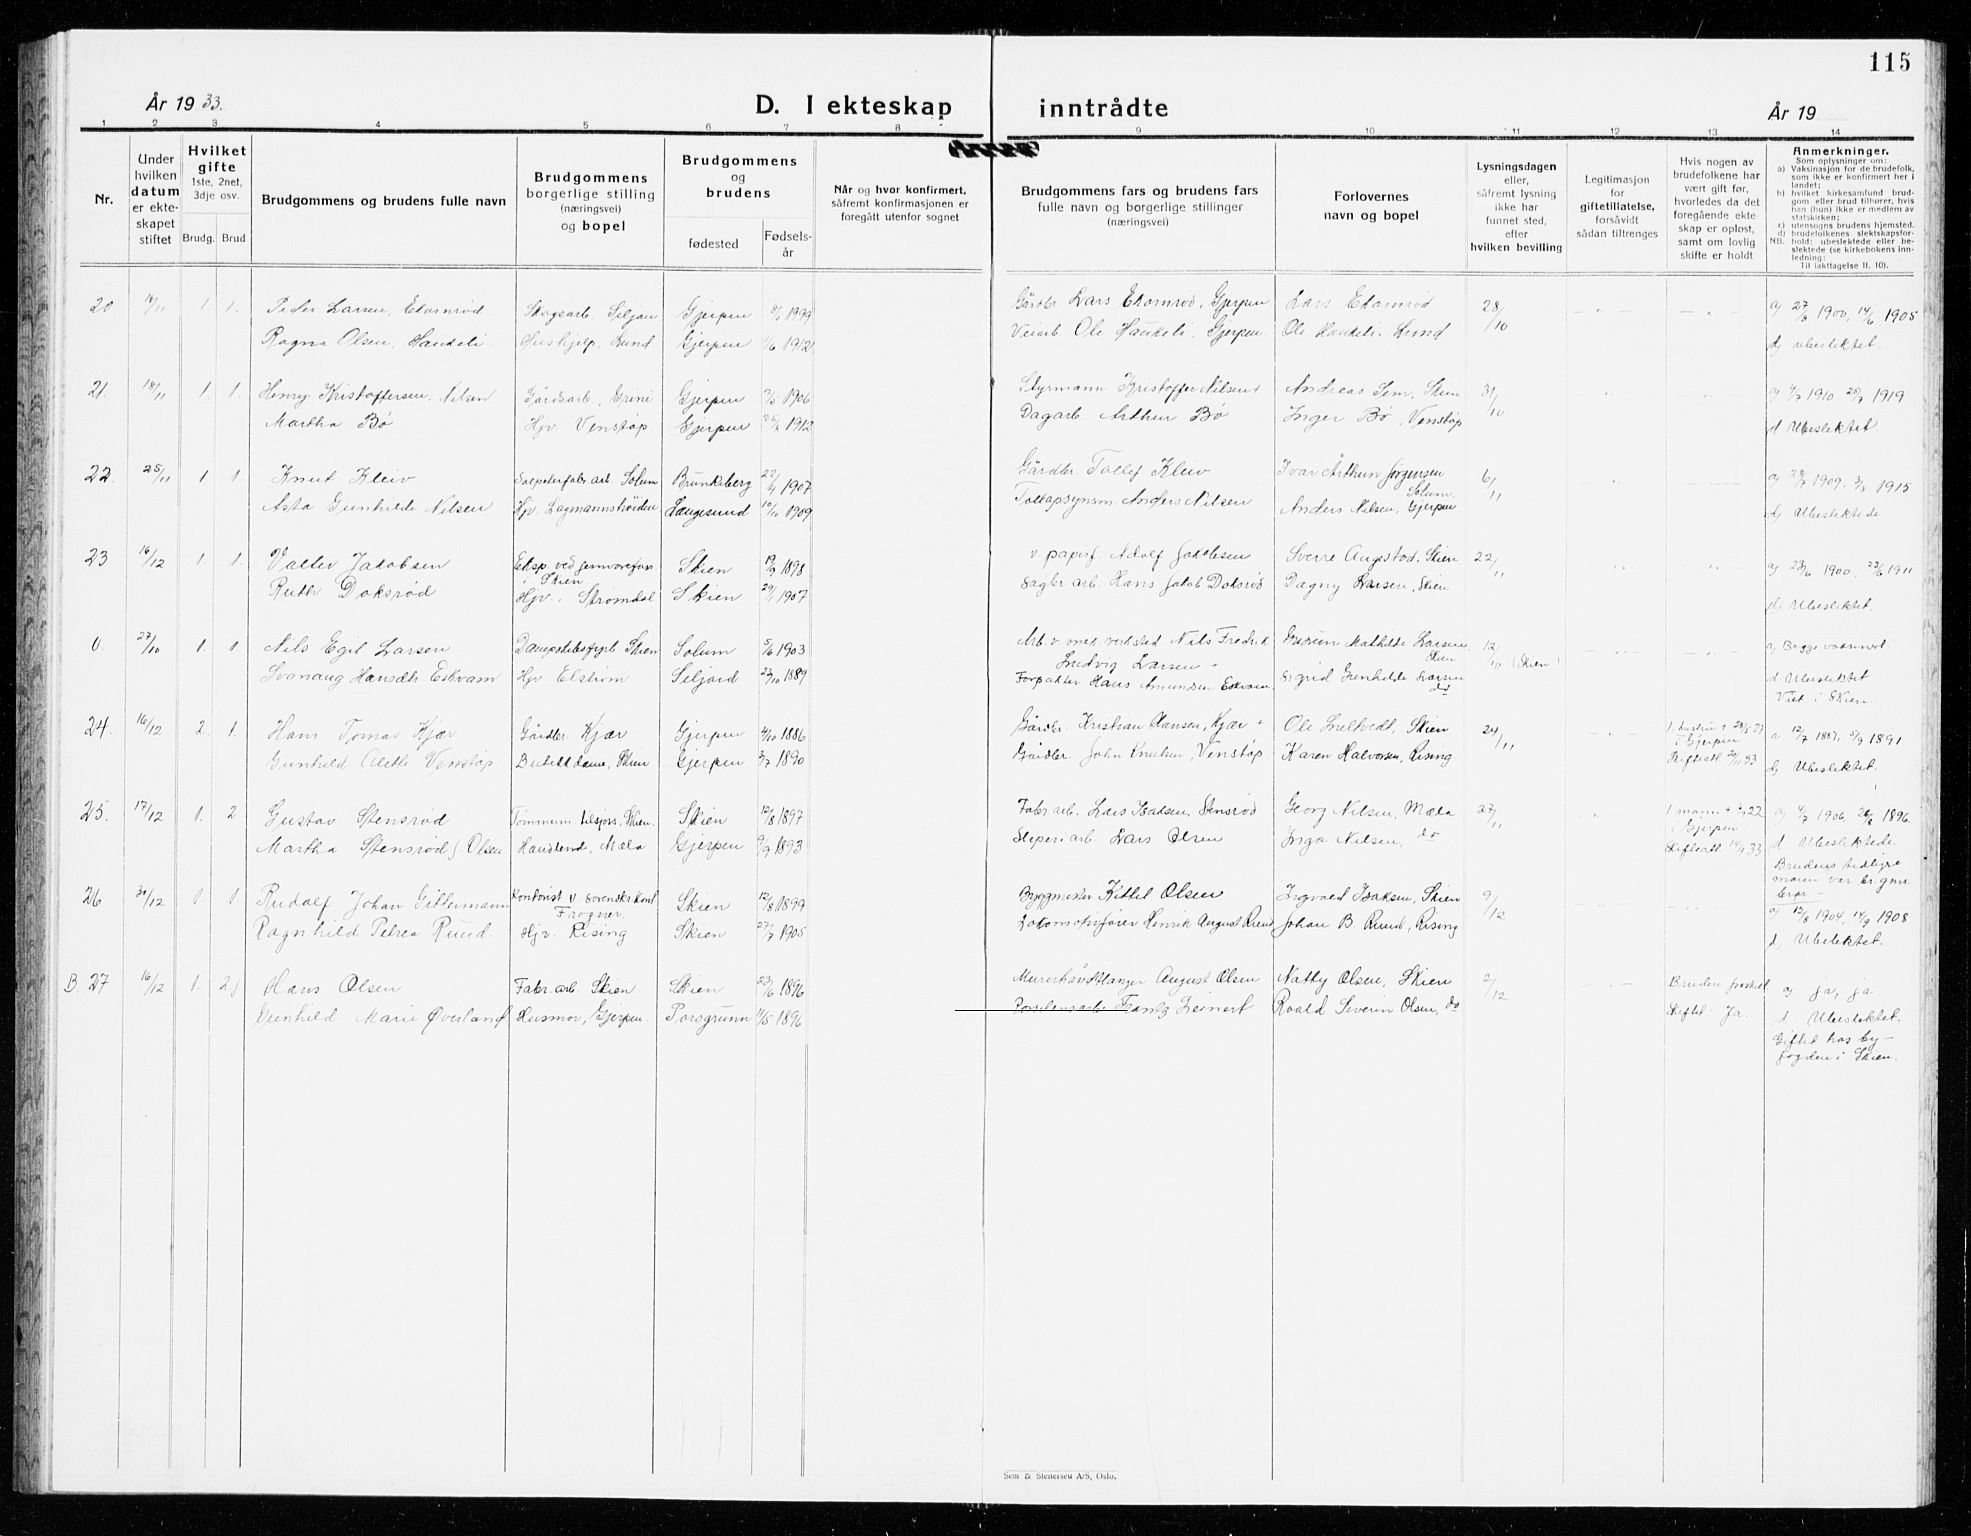 115
År 1933.
D. I ekteskap inntrådte
År 19
1 2 3 4 5 6 7 8 9 10 11 12 13 14
Nr.
Under hvilken datum er ekteskapet stiftet
Hvilket gifte
1ste, 2net, 3dje osv.
Brudg. Brud
Brudgommens og brudens fulle navn
Brudgommens borgerlige stilling (næringsvei) og bopel
Brudgommens og brudens
fødested
Fødselsår
Når og hvor konfirmert, såfremt konfirmasjonen er foregått utenfor sognet
Brudgommens fars og brudens fars fulle navn og borgerlige stillinger (næringsvei)
Forlovernes navn og bopel
Lysningsdagen eller, såfremt lysning ikke har funnet sted, efter hvilken bevilling
Legitimasjon for giftetillatelse, forsåvidt sådan tiltrenges
Hvis nogen av brudefolkene har vært gift før, hvorledes da det foregående ekteskap er opløst, samt om lovlig skifte er holdt
Anmerkninger.
Som oplysninger om:
a) Vaksinasjon for de brudefolk, som ikke er konfirmert her i landet;
b) hvilket kirkesamfund brudgom eller brud tilhører, hvis han (hun) ikke er medlem av statskirken;
c) utensogns brudens hjemsted.
d) brudefolkenes slektskapsforhold: ubeslektede eller beslektede (se kirkebokens innledning:
NB. Til iakttagelse II. 10).
20 18/11 1. 1. Peder Larsen Ekomrød Skogsarb. Siljan Gjerpen 1899 Gårdbr. Lars Ekomrød, Gjerpen Lars Ekomrød 28/10 a) 27/8 1900, 14/6 1905
Ragna Olsen Haukeli Hushjelp, Lund Gjerpen 1/6 1912 Veiarb. Ole Haukeli, Gjerpen Ole Haukeli, Lund d) ubeslektet.
21. 18/11 1. 1. Henry Kristoffersen Nilsen Gårdsarb., Grini Gjerpen 1906 Styrmann Kristoffer Nilsen + Andreas Sem, Skien 31/10 a) 4/7 1910 25/7 1919
Martha Bø Hjv. Venstøp Gjerpen 1912 Dagarb Arthur Bø Inger Bø, Venstøp d Ubeslektet.
22. 25/11 1 1. Knut Kleiv Salpeterfabr. arb. Solum Brunkeberg 1907 Gårdbr. Tollef Kleiv Ivar Arthur Jørgensen Solum 6/11 a) 1909. 3/8 1915
Asta Gunhilde Nilsen Hjv. Lagmannshøiden Langesund 10/10 1909 Tollopsynsm. Anders Nilsen Anders Nilsen, Gjerpen d) Ubeslektede.
23 16/12 1. 1. Valter Jakobsen Eksp. ved jernvareforr. i Skien Skien 19/9 1898 v papirf. Adolf Jakobsen Sverre Augestad, Skien 22/11 a) 23/6 1900, 23/6 1911
Ruth Doksrød Hjv., Strømdal Skien 29/1 1907 Sagbr arb. Hans Jakob Doksrød Dagny Larsen, Skien d) Ubeslektet.
0. 27/10 1. 1. Nils Egil Larsen Skien Solum 5/6 1903 Arb. v. mek. verksted Nils Fredrik Ludvig Larsen + Mathilde Larsen Skien 12/10 (Skien) a) Begge vaksinert.
Svanaug Hansdtr Eskvam Hjv Elstrøm Seljord 23/10 1889 Forpakter Hans Amundsen Eskvam Sigrid Gunhilde Larsen do d Ubeslektet Viet i Skien.
24. 16/12 2. 1. Hans Tomas Kjær Gårdbr. Kjær Gjerpen 4/10 1886 Gårdbr. Kristian Hansen, Kjær + Ole Skien 24/11 1. hustru + i Gjerpen a 12/7 1887, 5/9 1891
Gunhild Alette Venstøp Butikkdame, Skien Gjerpen 3/7 1890 Gårdbr. John Knutsen, Venstøp Karen Halvorsen, Rising Skifteatt. 33 d) Ubeslektet.
25. 17/12 1. 2 Gustav Stensrød Tømmerm. Skien. Skien 12/8 1897 Fabr arb. Lars Isaksen, Stensrød Georg Nilsen, Mæla 27/11 1. mann + 22 i Gjerpen a) 4/7 1906, 26/8 1896.
Martha Stensrød f. Olsen Handlende, Mæla Gjerpen 9/9 1893 Sliperiarb. Lars Olsen Inga Nilsen, do Skifteatt 33 d Ubeslektede. Brudens tidligre mann var brgms bror
26 30/12 1. 1. Rudolf Johan Gittermann Kontorist v. svenske kont. Frogner. Skien 12/8 1899 Byggmester Kittel Olsen Ingvald Isaksen, Skien 9/12 a) 12/8 1904, 14/9 1908
Ragnhild Petrea Ruud. Hjv. Rising Skien 27/7 1905 Lokomotivfører Henrik August Ruud Johan B. Ruud, Rising d) Ubeslektet.
B. 27 16/12 1. 2 Hans Olsen Fabr. arb. Skien Skien 23/6 1896 Murerhåndtlanger August Olsen Natty Olsen, Skien 2/12 Bruden fraskilt a) ja, ja
Gunhild Marie Øverland Husmor, Gjerpen. Porsgrunn 11/5 1896 Porselensarb. Frantz Leinert Roald Severin Olsen, do Skiftet: Ja. d. Ubeslektet. Giftet hos byfogden i Skien.
Sem & Stenersen A/S, Oslo.